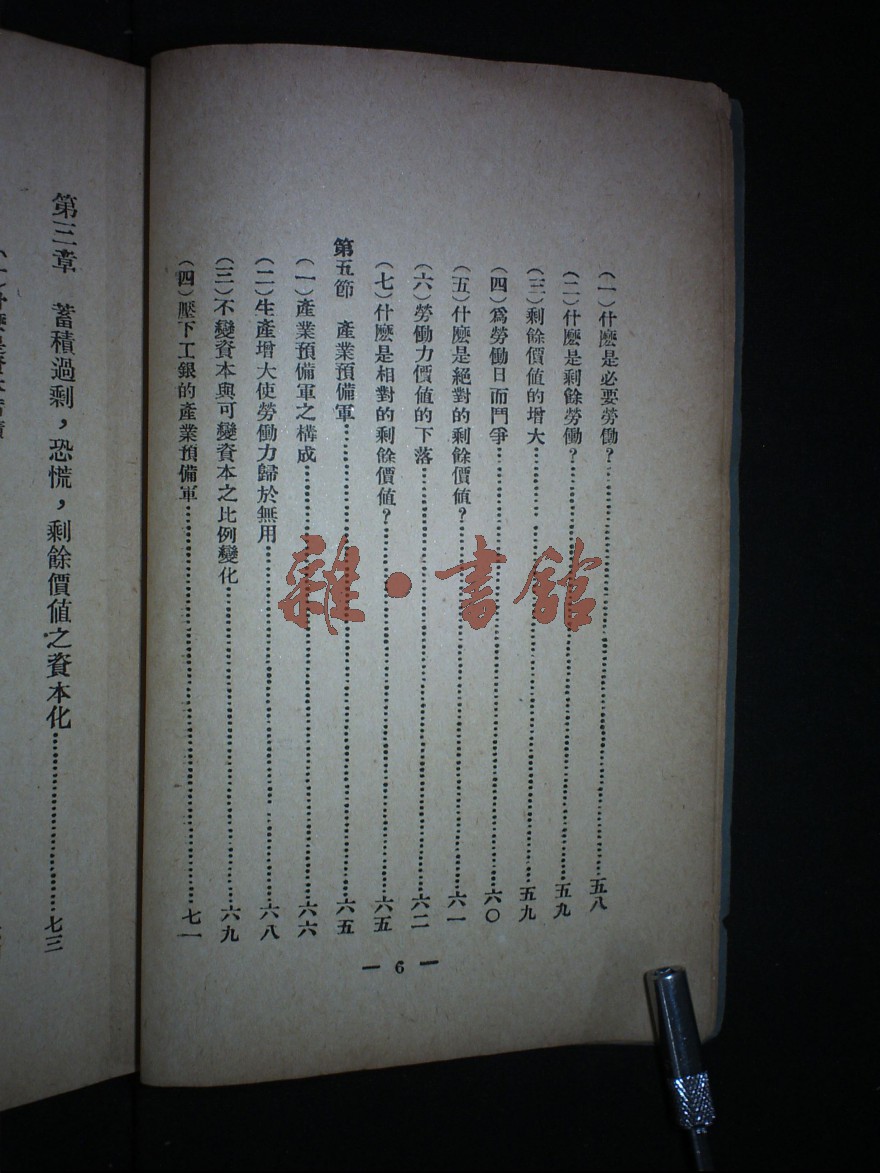 （一）什麽是必要勞働？……五八
（二）什麽是剩餘勞働？……五九
（三）剩餘價值的增大……五九
（四）爲勞働日而鬥爭……六〇
（五）什麽是絕對的剩餘價值？……六一
（六）勞働力價值的下落……六二
（七）什麽是相對的剩餘價值？……六五
第五節　產業預備軍……六五
（一）產業預備軍之構成……六六
（二）生產增大使勞働力歸於無用……六八
（三）不變資本與可變資本之比例變化……六九
（四）壓下工銀的產業預備軍……七一
— 6 —
第三章　蓄積過剩，恐慌，剩餘價值之資本化……七三
雜·書館